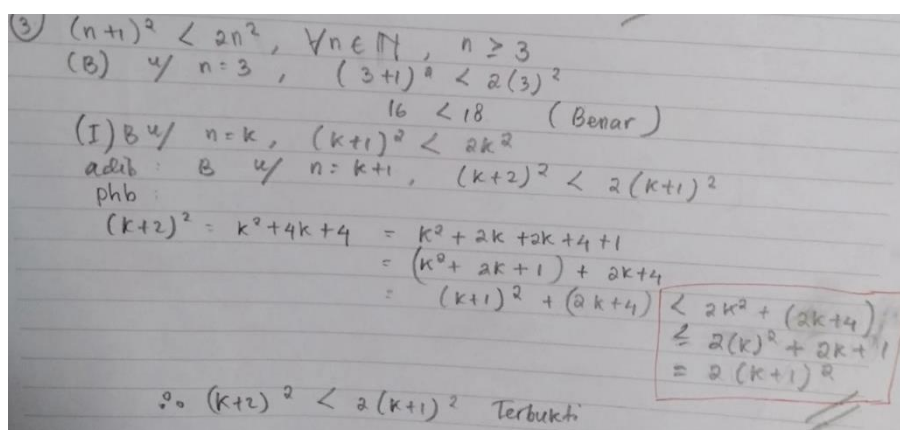 ③ (n+1)² < 2n², ∀n ∈ ℕ, n ≥ 3
(B) u/ n=3, (3+1)² < 2(3)²
16 < 18 (Benar)
(I) B u/ n=k, (k+1)² < 2k²
adib : B u/ n=k+1, (k+2)² < 2(k+1)²
phb :
(k+2)² = k²+4k+4 = k²+2k+2k+4+1
= (k²+2k+1) + 2k+4
= (k+1)² + (2k+4) < 2k² + (2k+4)
≤ 2(k)² + 2k+1
= 2(k+1)²
∴ (k+2)² < 2(k+1)² Terbukti